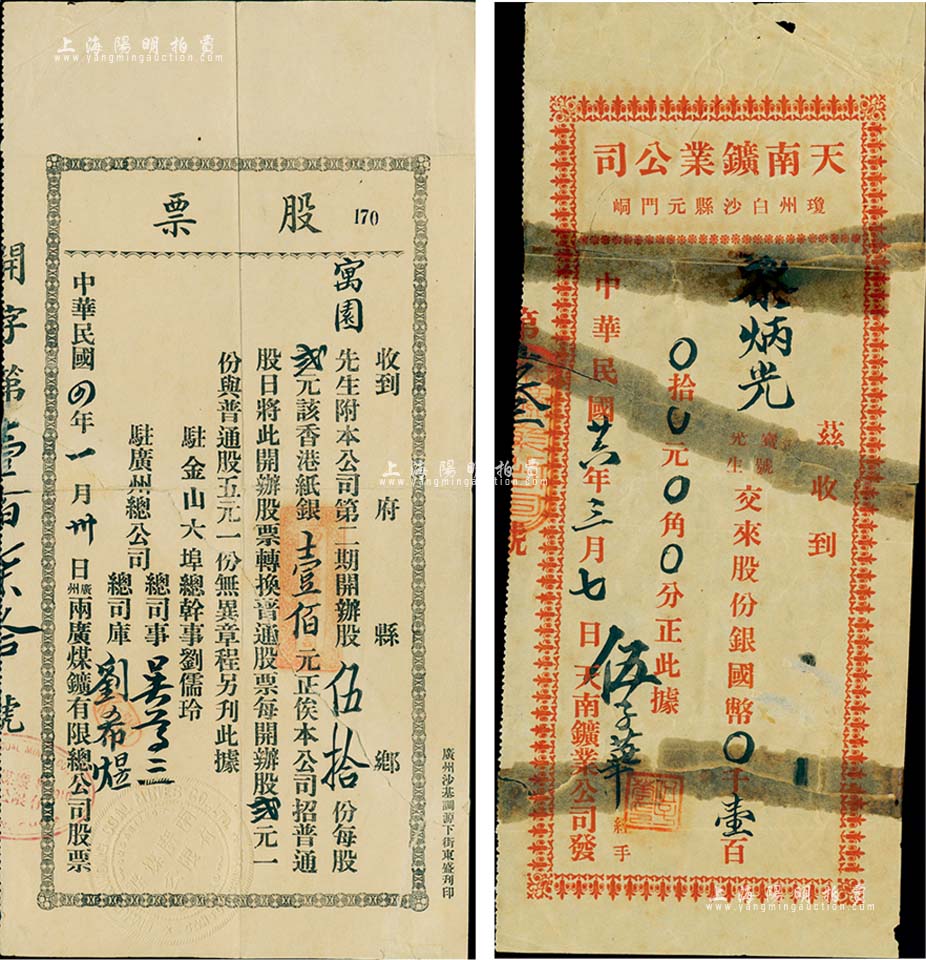 上海陽明拍賣
www.yangmingauction.com
股票
170
收到 府 縣 鄉
寓園先生附本公司第二期開辦股伍拾份每股
弍元該香港紙銀壹佰元正俟本公司招普通
股日將此開辦股票轉換普通股票每開辦股弍元一
份與普通股五元一份無異章程另刋此據
駐金山大埠總幹事劉儒玲
駐廣州總公司
總司事
總司庫 劉希煜
中華民國四年一月卅日廣州兩廣煤鑛有限總公司股票
開字第壹百柒拾號
廣州沙基調源下街東盛刋印
上海陽明拍賣
www.yangmingauction.com
上海陽明拍賣
www.yangmingauction.com
天南鑛業公司
瓊州白沙縣元門峒
茲收到
炳光
寶號
先生
交來股份銀國幣0千壹百
0拾0元0角0分正此據
伍子華
經手
中華民國廿六年三月七日天南鑛業公司發
第
號
上海陽明拍賣
www.yangmingauction.com